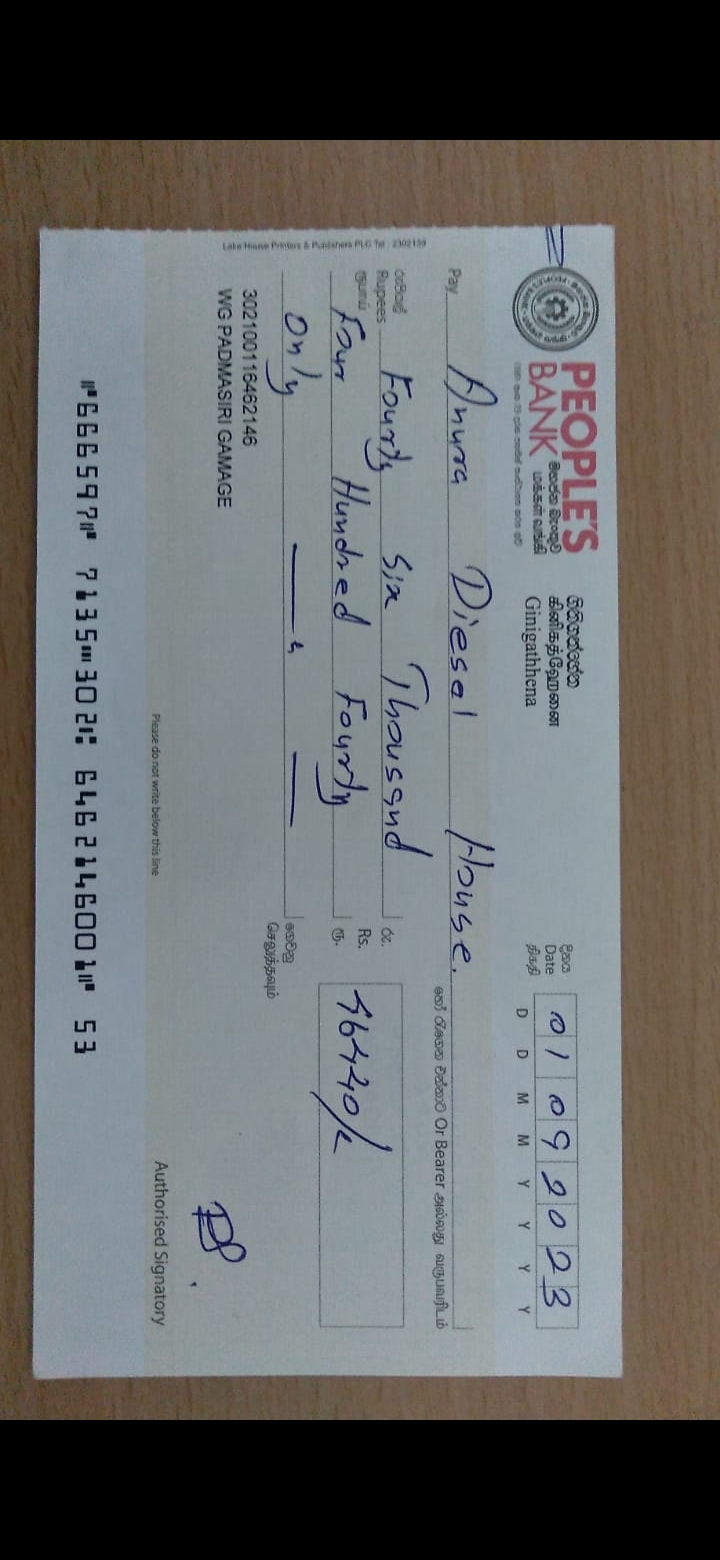 PEOPLE'S
BANK
මහජන බැංකුව
மக்கள் வங்கி
ගිනිගත්හේන
கினிகத்ஹேனை
Ginigathhena
දිනය
Date
திகதி
01092023
D D M M Y Y Y Y
Pay Anura Diesel House.
හෝ රැගෙන එන්නාට Or Bearer அல்லது வருபவரிடம்
රුපියල්
Rupees
ரூபாய்
Fourty Six Thousand
Four Hundred Fourty
Only
රු.
Rs.
ரூ.
46440/-
ගෙවනු
செலுத்தவும்
302100116462146
WG PADMASIRI GAMAGE
Please do not write below this line
Authorised Signatory
⑈666597⑈ 7135⑉302⑆ 6462146001⑈ 53
Lake House Printers & Publishers PLC Tel : 2302139